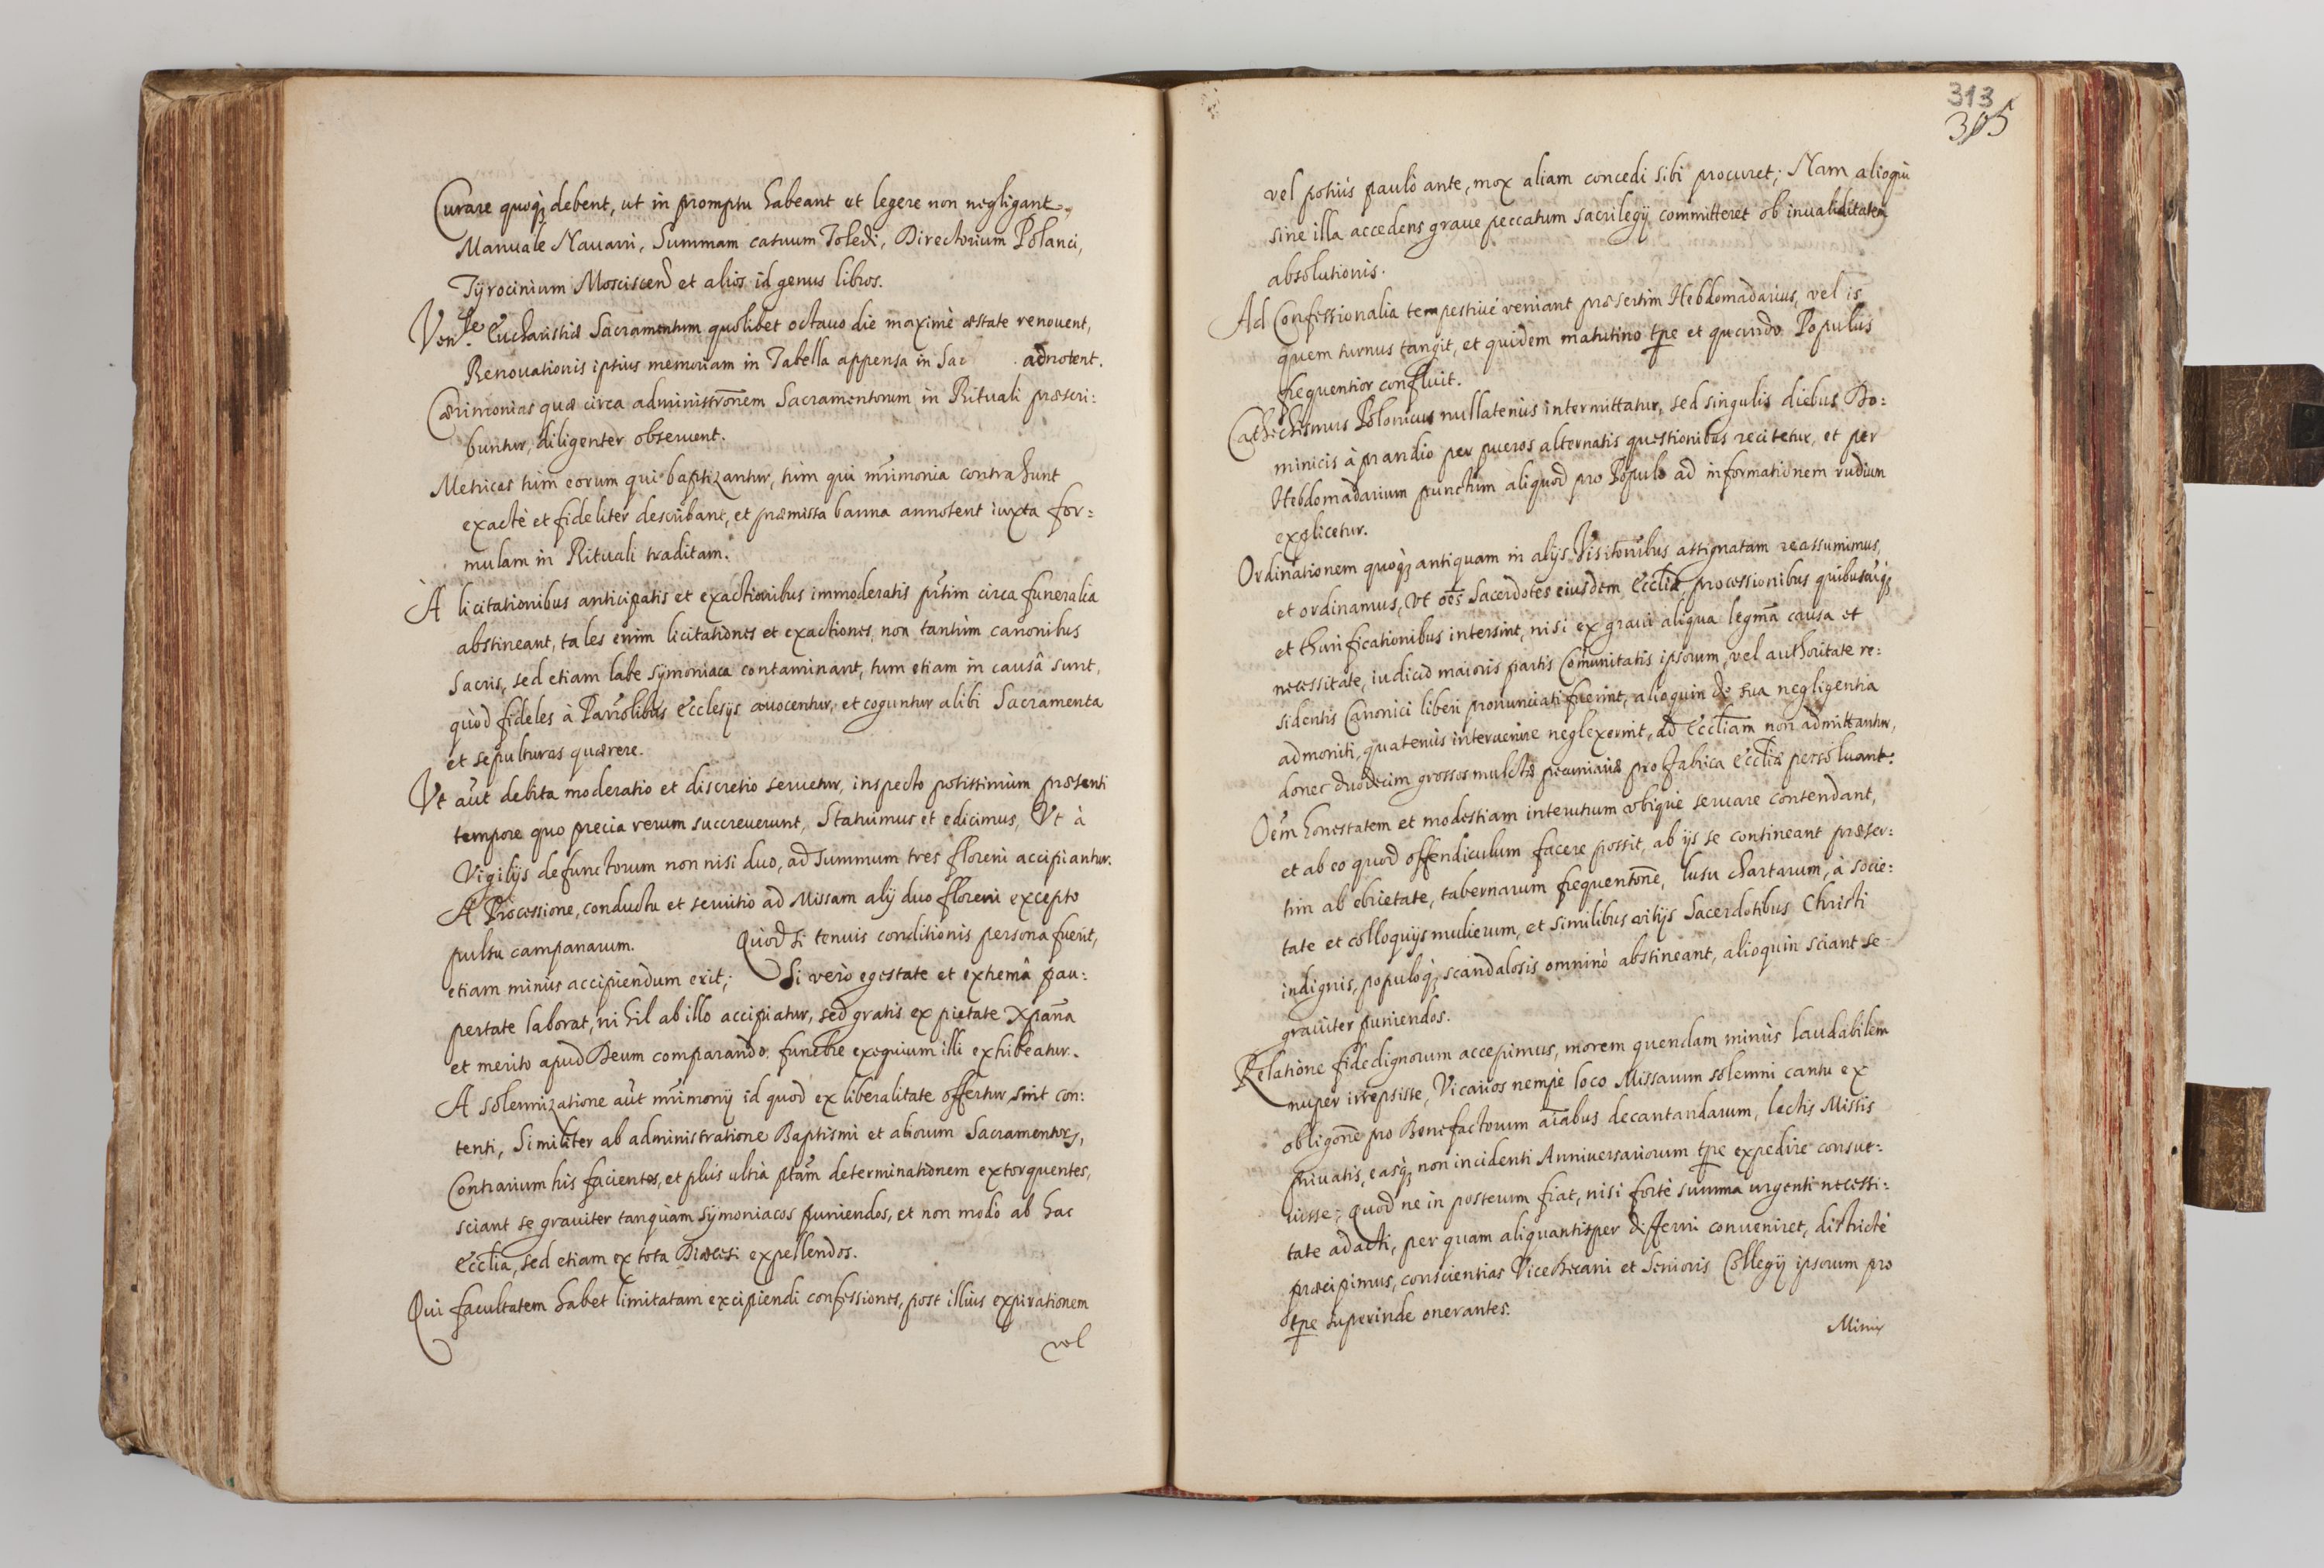 Curare quoq; debent, ut in promptu habeant et legere non negligant,
Manuale Nauarri, Summam casuum Toledi, Directorium Polanci,
Tyrocinium Moscicen et alios id genus libros.
Ven.le Eucharistiæ Sacramentum quolibet octauo die maximè æstate renouent,
Renouationis ipsius memoriam in Tabella appensa in Sac adnotent.
Cærimonias quæ circa administrõnem Sacramentorum in Rituali præscri:
buntur, diligenter obseruent.
Metrices tùm eorum qui baptizantur, tùm qui mrimonia contrahunt
exactè et fideliter describant, et præmissa banna annotent iuxta for:
mulam in Rituali traditam.
À licitationibus anticipatis et exactionibus immoderatis prtim circa funeralia
abstineant, tales enim licitationes et exactiones, non tantùm canonibus
sacris, sed etiam labe symoniaca contaminant, tum etiam in causâ sunt,
quòd fideles à Parrolibus Ecclesijs auocentur, et coguntur alibi Sacramenta
et sepulturas quærere.
Vt aũt debita moderatio et discretio seruetur, inspecto potissimùm præsenti
tempore quo precia rerum succreuerunt, Statuimus et edicimus, Vt à
Vigilijs defunctorum non nisi duo, ad summum tres floreni accipiantur.
A Processione, conductu et seruitio ad Missam alij duo floreni excepto
pulsu campanarum. Quòd si tenuis conditionis persona fuerit,
etiam minùs accipiendum erit; Si verò egestate et extremâ pau:
pertate laborat, nihil ab illo accipiatur, sed gratis ex pietate Xpãna
et merito apud Deum comparando, funebre exequium illi exhibeatur.
A solemnizatione aũt mrimonij id quod ex liberalitate offertur sint con:
tenti, Similiter ab administratione Baptismi et aliorum Sacramentor,
Contrarium his facientes, et plùs ultrà ptam determinationem extorquentes,
sciant se grauiter tanquam symoniacos puniendos, et non modò ab hac
Ecclia, sed etiam ex tota Diæcesi expellendos.
Qui facultatem habet limitatam excipiendi confessiones, post illius expirationem
vel
313
305
vel potiùs paulò ante, mox aliam concedi sibi procuret; Nam alioqui
sine illa accedens graue peccatum sacrilegij committeret ob inualiditatem
absolutionis.
Ad Confessionalia tempestiuè veniant præsertim Hebdomadarius, vel is
quem turnus tangit, et quidem matutino tpe et quando Populus
frequentior confluit.
Cathechismus Polonicus nullatenùs intermittatur, sed singulis diebus Do:
minicis à prandio per pueros alternatis quæstionibus recitetur, et per
Hebdomadarium punctum aliquod pro Populo ad informationem rudium
explicetur.
Ordinationem quoq; antiquam in alijs Visitõnibus assignatam reassumimus,
et ordinamus, Vt oẽs Sacerdotes eiusdem Eccliæ, processionibus quibuscuq;
et thurificationibus intersint, nisi ex graui aliqua legma causa et
necessitate, iudicio maioris partis Comunitatis ipsorum, vel authoritate re:
sidentis Canonici liberi pronunciati fuerint, alioquin de sua negligentia
admoniti, quatenùs interuenire neglexerint, ad Eccliam non admittantur,
donec duodecim grossos mulctæ pecuniariæ pro fabrica Eccliæ persoluant.
Oẽm honestatem et modestiam interutrum vbique seruare contendant,
et ab eo quod offendiculum facere possit, ab ijs se contineant præser:
tim ab ebrietate, tabernarum frequentõne, lusu chartarum, à socie:
tate et colloquijs mulierum, et similibus vitijs Sacerdotibus Christi
indignis, populoq; scandalosis omninò abstineant, alioquin sciant se
grauiter puniendos.
Relatione fidedignorum accepimus, morem quendam minùs laudabilem
nuper irrepsisse, Vicarios nempè loco Missarum solemni cantu ex
obligõne pro Benefactorum aiabus decantandarum, lectis Missis
priuatis, easq; non incidenti Anniuersariorum tpe expedire consue:
uisse; quod ne in posterum fiat, nisi fortè summa urgenti necessi:
tate adacti, per quam aliquantisper differri conueniret, districtè
præcipimus, conscientias ViceDecani et Senioris Collegij ipsorum pro
tpe superinde onerantes.
Minùs